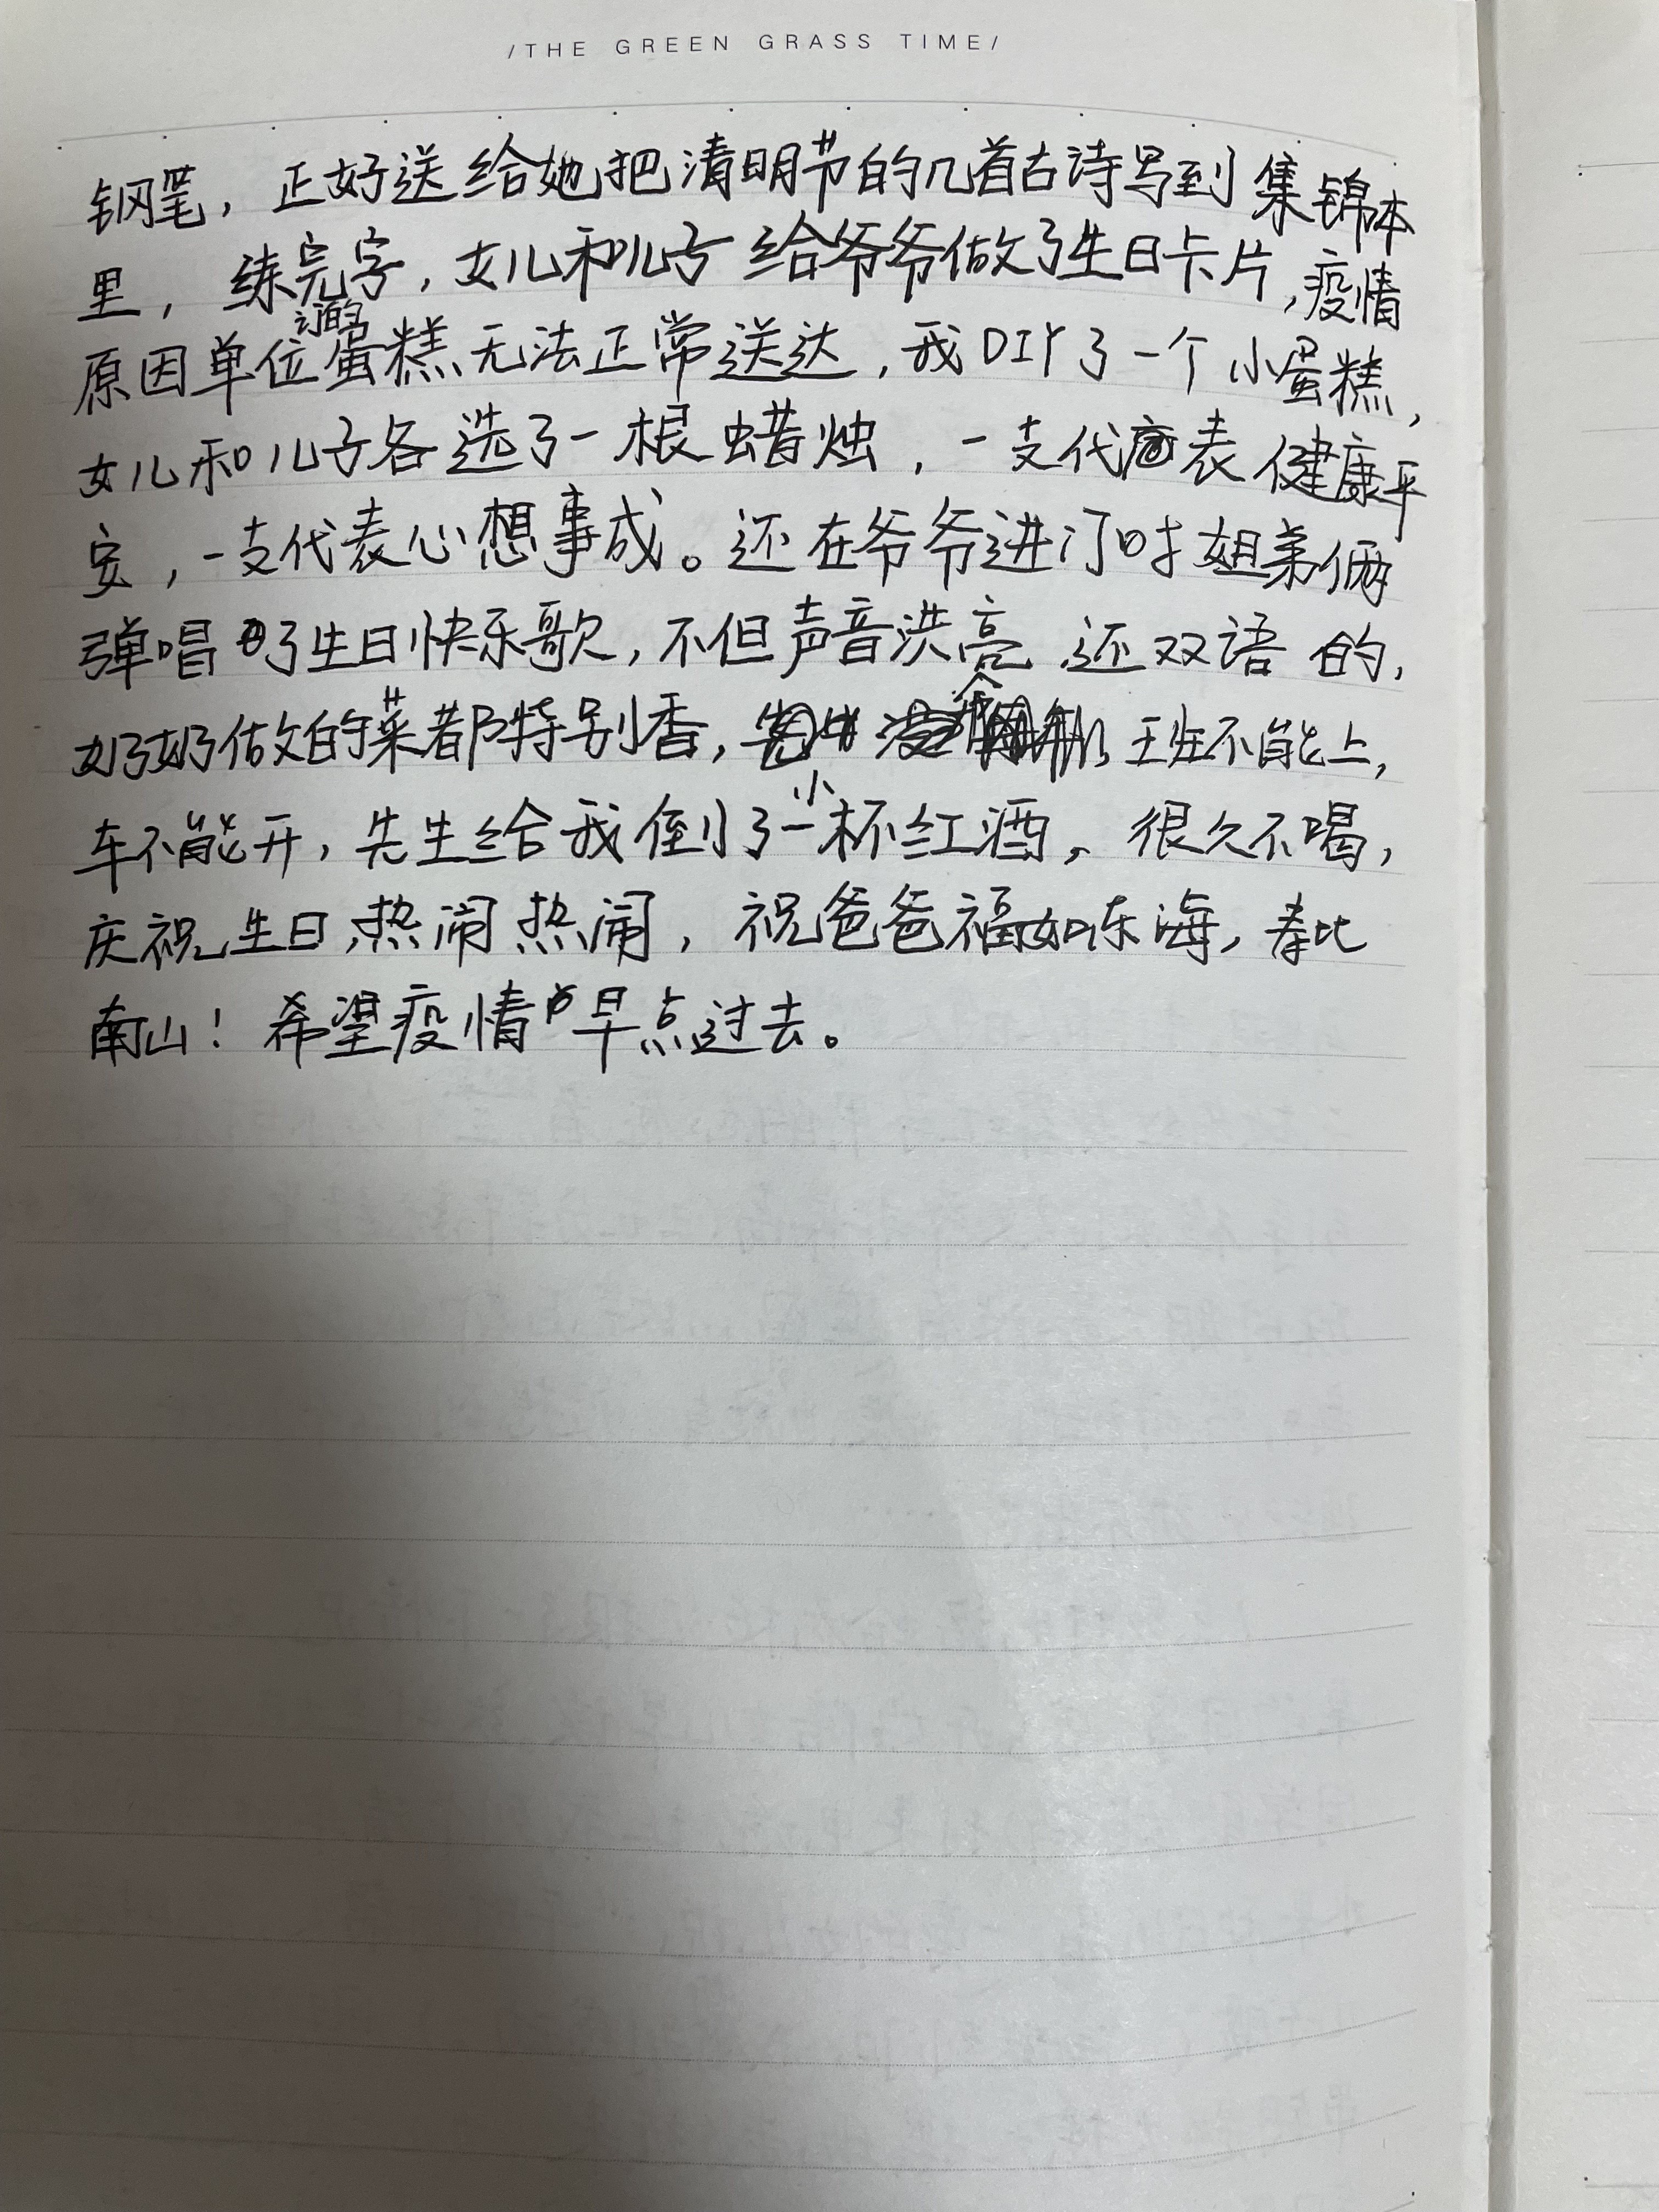 /THE GREEN GRASS TIME/
钢笔，正好送给她把清明节的几首古诗写到集锦本
里，练完字，女儿和儿子给爷爷做了生日卡片，疫情
原因单位订的蛋糕无法正常送达，我DIY了一个小蛋糕，
女儿和儿子各选了一根蜡烛，一支代表健康平
安，一支代表心想事成。还在爷爷进门时姐弟俩
弹唱了生日快乐歌，不但声音洪亮还双语的，
奶奶做的菜都特别香，班不能上，
车不能开，先生给我倒了一小杯红酒，很久不喝，
庆祝生日热闹热闹，祝爸爸福如东海，寿比
南山！希望疫情早点过去。